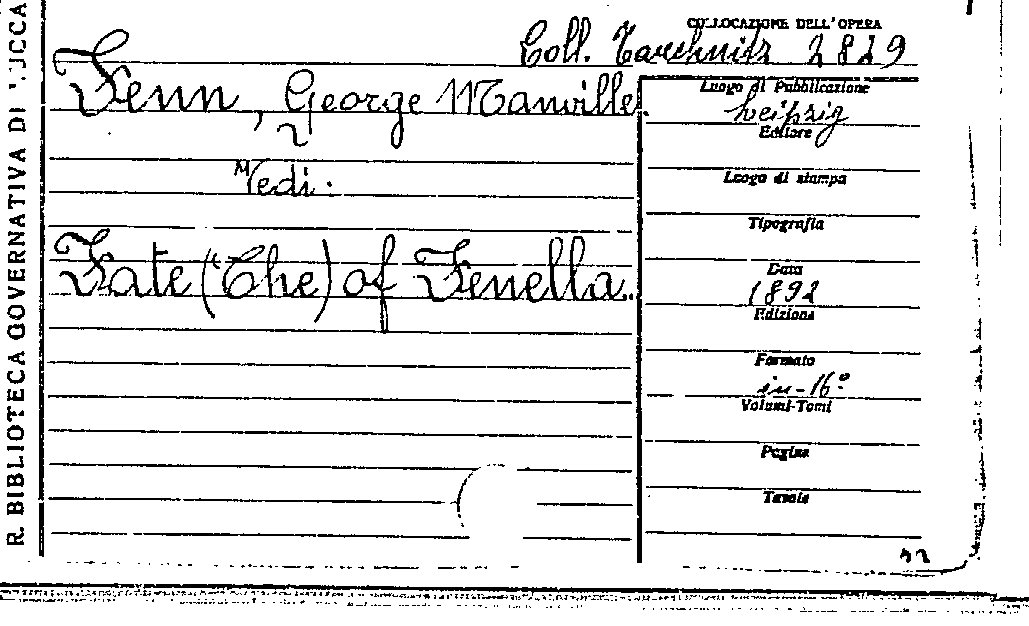 R. BIBLIOTECA GOVERNATIVA DI LUCCA
COLLOCAZIONE DELL'OPERA
Coll. Tauchnitz 2829
Fenn, George Manville.
Vedi.
Fate (The) of Fenella.
Luogo di Pubblicazione
Leipzig
Editore
Luogo di stampa
Tipografia
Data
1892
Edizione
Formato
in-16°
Volumi-Tomi
Pagine
Tavole
42